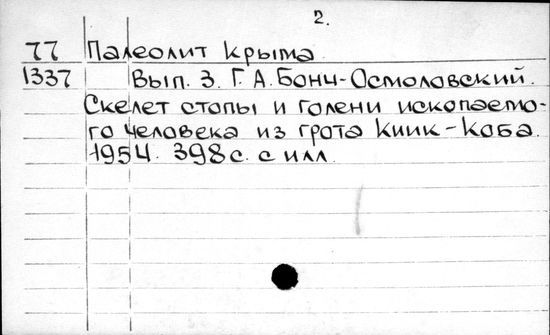 2.
77 Палеолит Крыма
1337 Вып. 3. Г. А. Бонч-Осмоловский.
Скелет стопы и голени ископаемо-
го человека из грота Киик-Коба.
1954. 398 с. с илл.